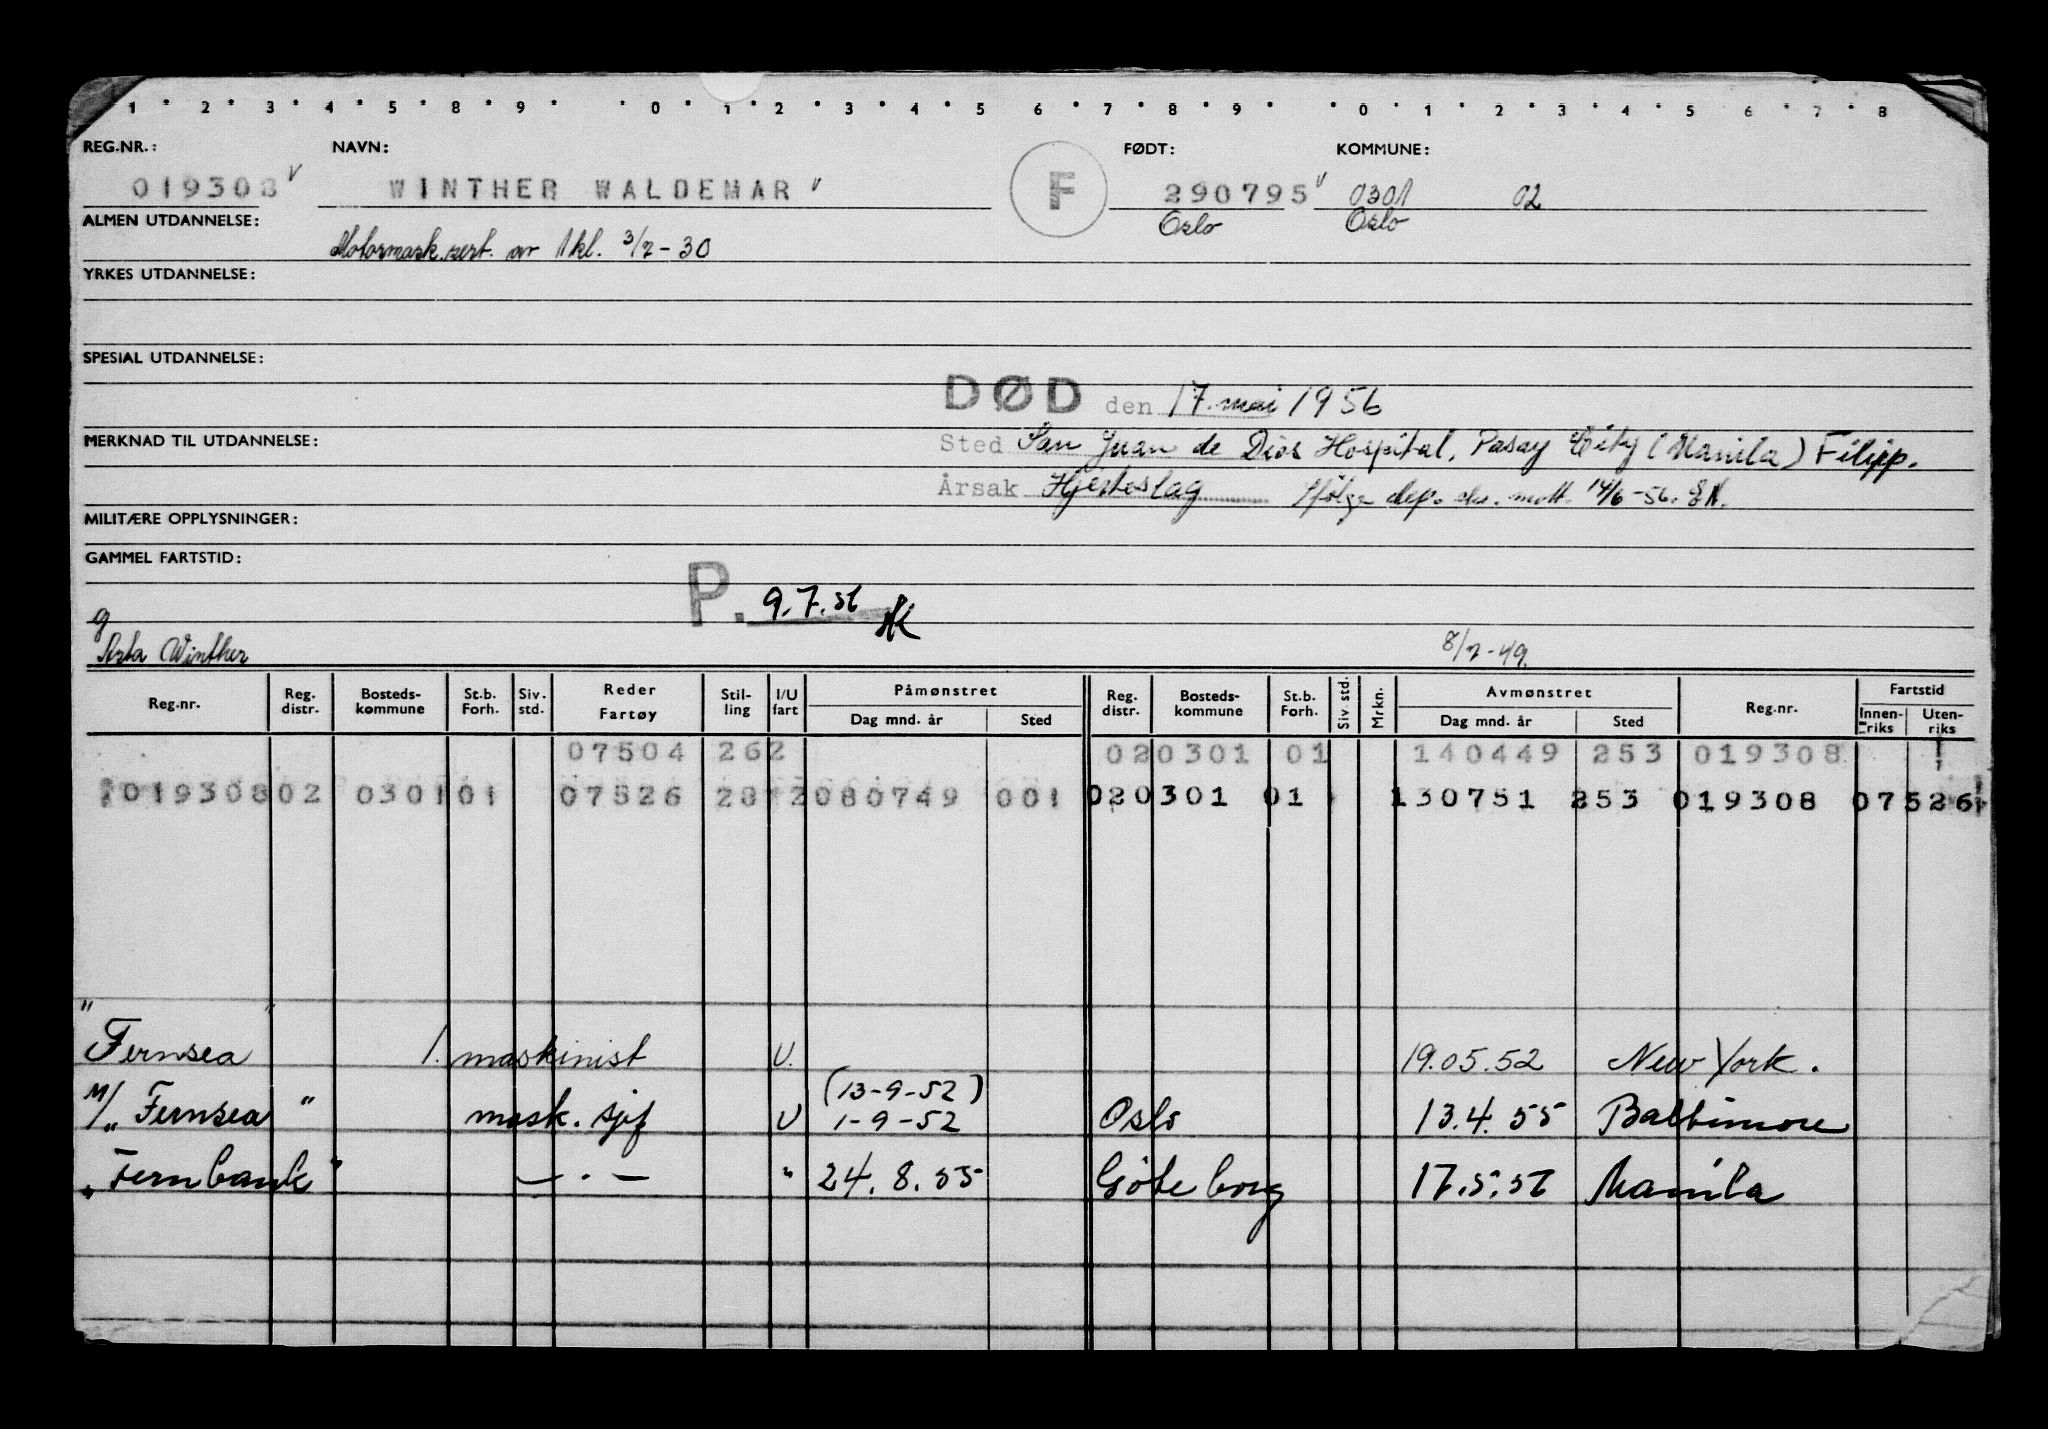 1 2 3 4 5 8 9 0 1 2 3 4 5 6 7 8 9 0 1 2 3 4 5 6 7 8
REG.NR.: NAVN: FØDT: KOMMUNE:
019308 V WINTHER WALDEMAR V F 290795 V 0301 02
Oslo Oslo
ALMEN UTDANNELSE:
Motormask.sert. av 1 kl. 3/2-30
YRKES UTDANNELSE:
SPESIAL UTDANNELSE:
DØD den 17. mai 1956
MERKNAD TIL UTDANNELSE:
Sted San Juan de Dios Hospital, Pasay City (Manila) Filipp.
Årsak Hjerteslag Ifølge dep. skr. mott. 14/6-56.
MILITÆRE OPPLYSNINGER:
GAMMEL FARTSTID:
P. 9.7.56
g
Winther 8/7-49.
Reg.nr. Reg. distr. Bosteds-kommune St.b. Forh. Siv. std. Reder Fartøy Stil-ling I/U fart Påmønstret Dag mnd. år Sted Reg. distr. Bosteds-kommune St.b. Forh. Siv. std. Mrkn. Avmønstret Dag mnd. år Sted Reg.nr. Fartstid Innen-riks Uten-riks
07504 262 020301 01 140449 253 019308
019308 02 0301 01 07526 2 080749 001 020301 01 130751 253 019308 07526
" "
Fernsea 1. maskinist U. 19.05.52 New York.
(13-9-52)
M/" Fernsea " mask. sjef U 1-9-52 Oslo 13.4.55 Baltimore
" Fernbank " — . — " 24.8.55 Göteborg 17.5.56 Manila